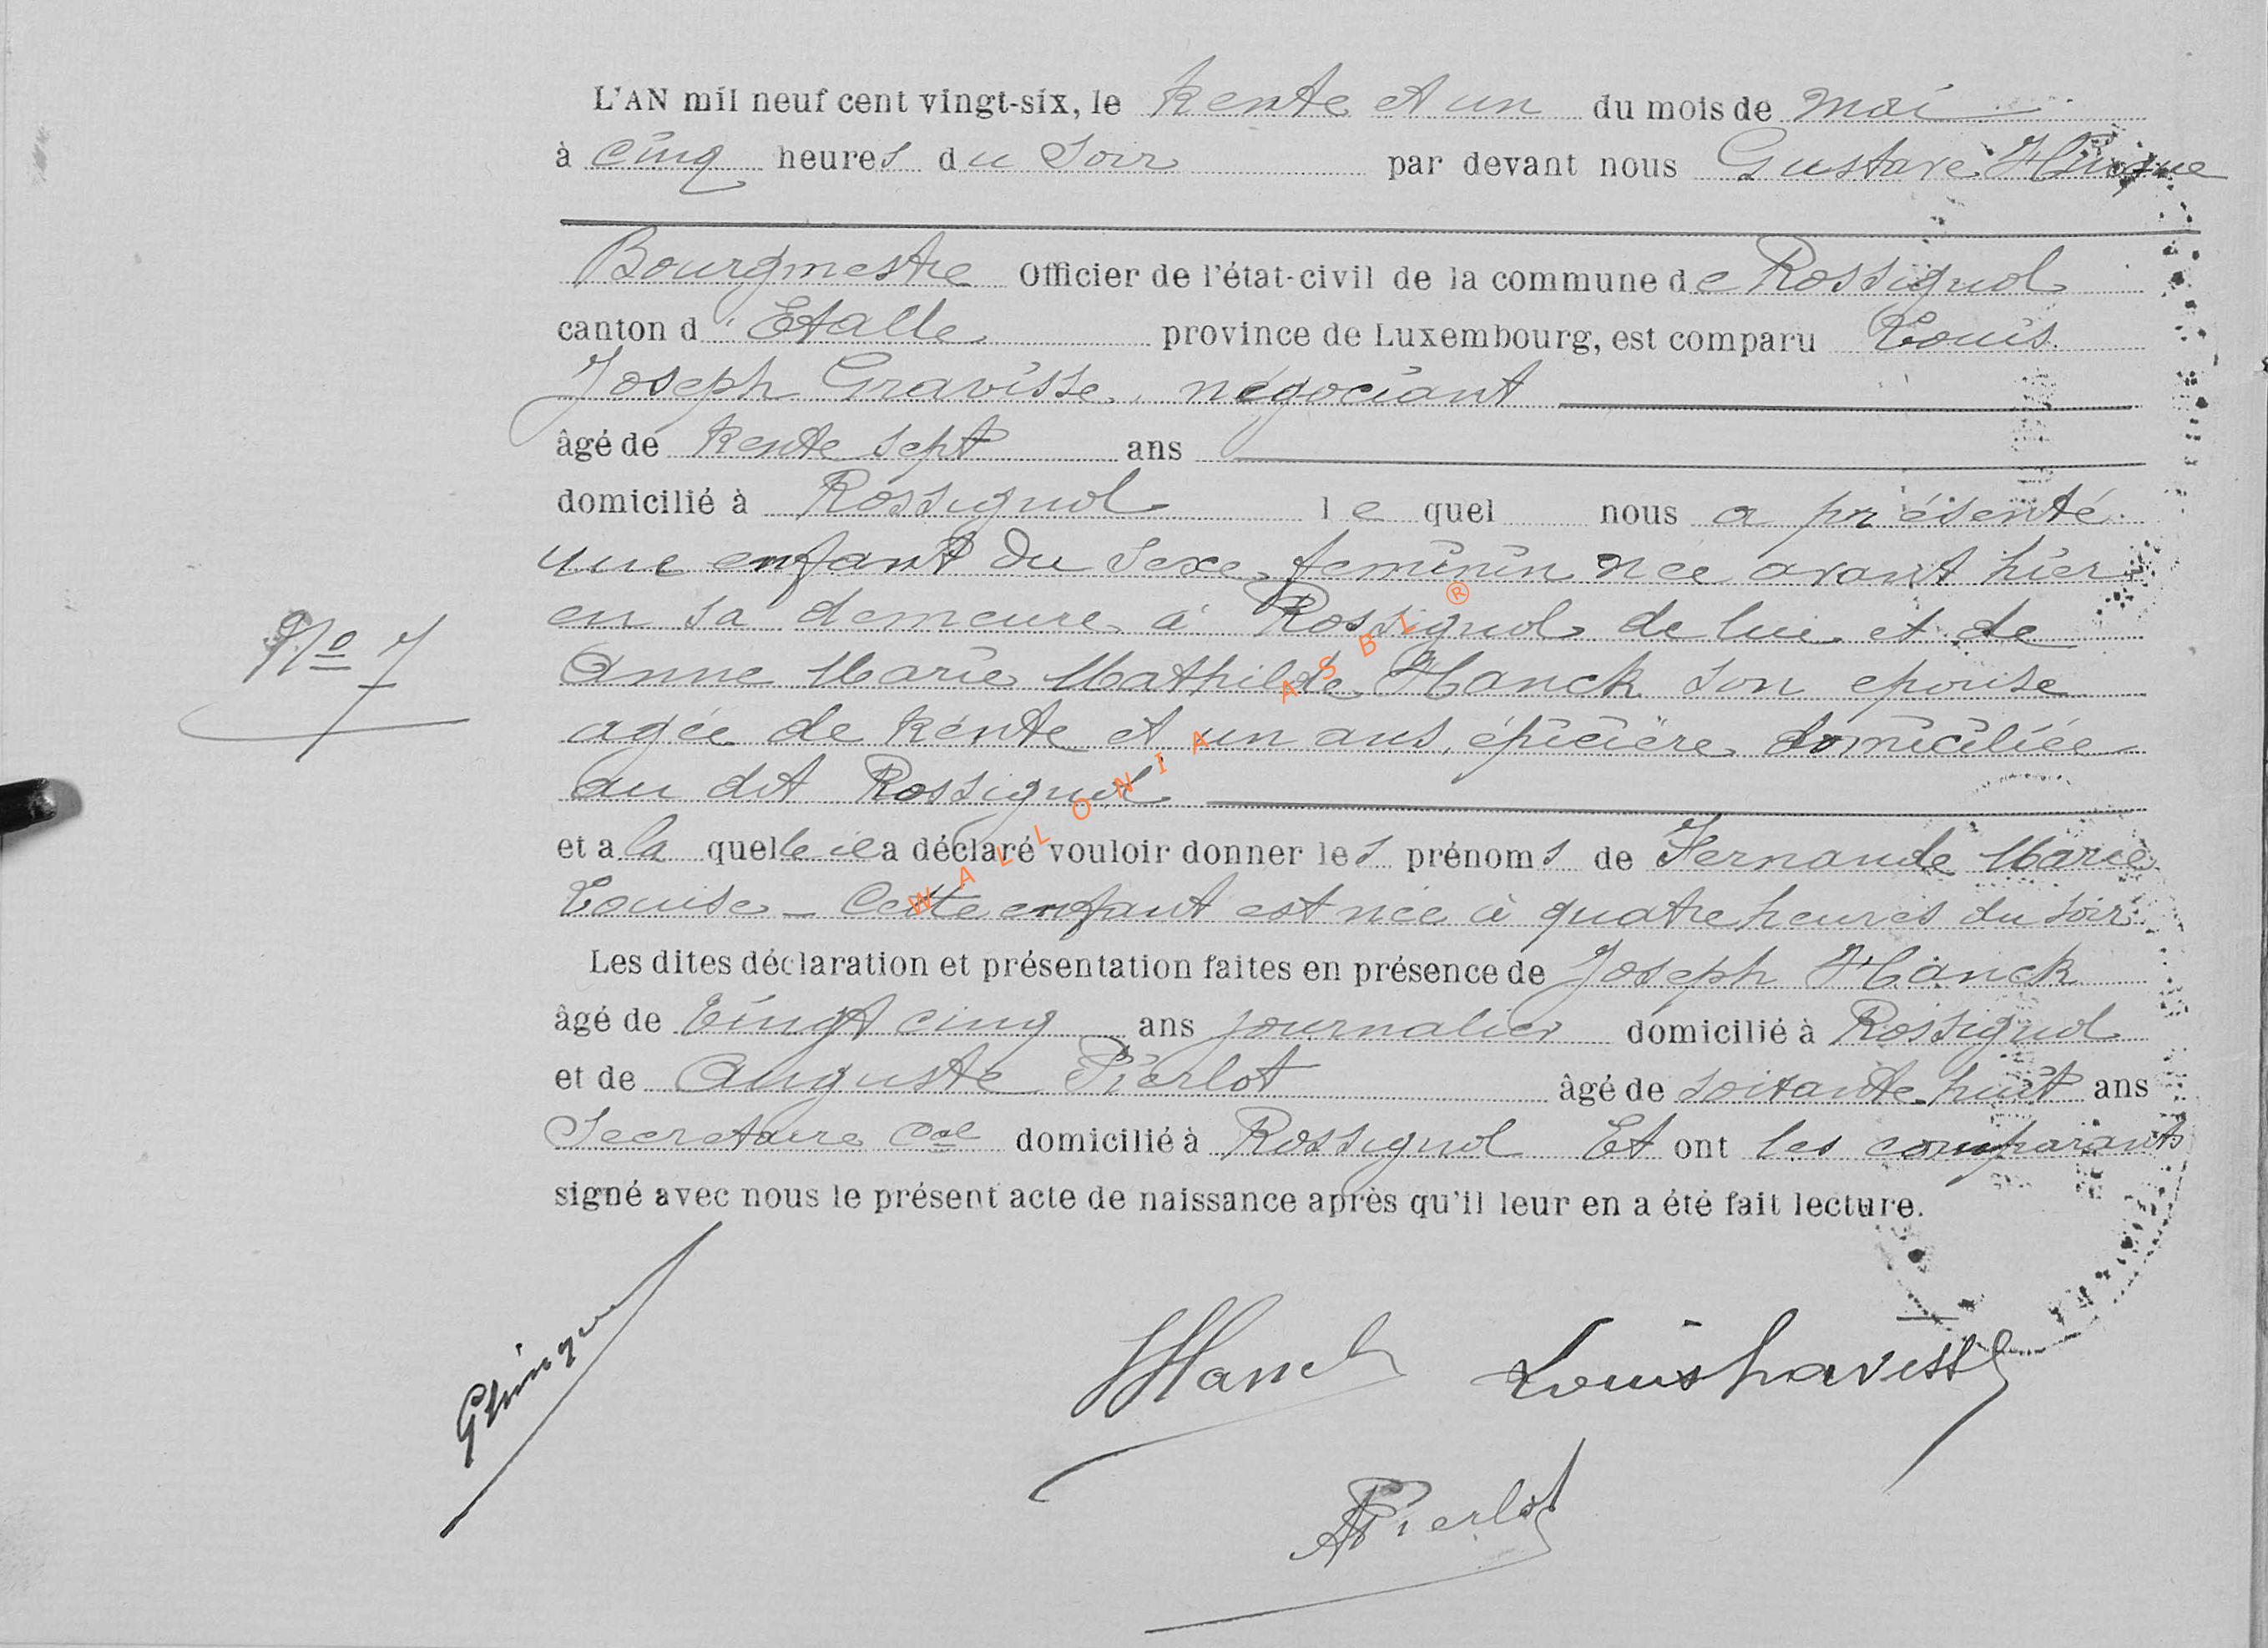 L'AN mil neuf cent vingt-six, le trente et un du mois de mai
à cinq heures du soir par devant nous Gustave
Bourgmestre Officier de l'état-civil de la commune de Rossignol
canton d'Etalle province de Luxembourg, est comparu Louis
Joseph Gravisse, négociant
âgé de trente sept ans
domicilié à Rossignol lequel nous a présenté
une enfant du sexe féminin née avant hier
en sa demeure à Rossignol de lui et de
Anne Marie Mathilde Hanck son epouse
agée de trente et un ans, épicière domiciliée
au dit Rossignol
et a laquelle il a déclaré vouloir donner les prénoms de Fernande Marie
Louise - Cette enfant est née à quatre heures du soir
Les dites déclaration et présentation faites en présence de Joseph Hanck
âgé de vingt cinq ans journalier domicilié à Rossignol
et de Auguste Pierlot âgé de soixante huit ans
Secretaire cal domicilié à Rossignol Et ont les comparants
signé avec nous le présent acte de naissance après qu'il leur en a été fait lecture.
No 7
JHanck Louis Gravisse
APierlot
WALLONIA ASBL ®